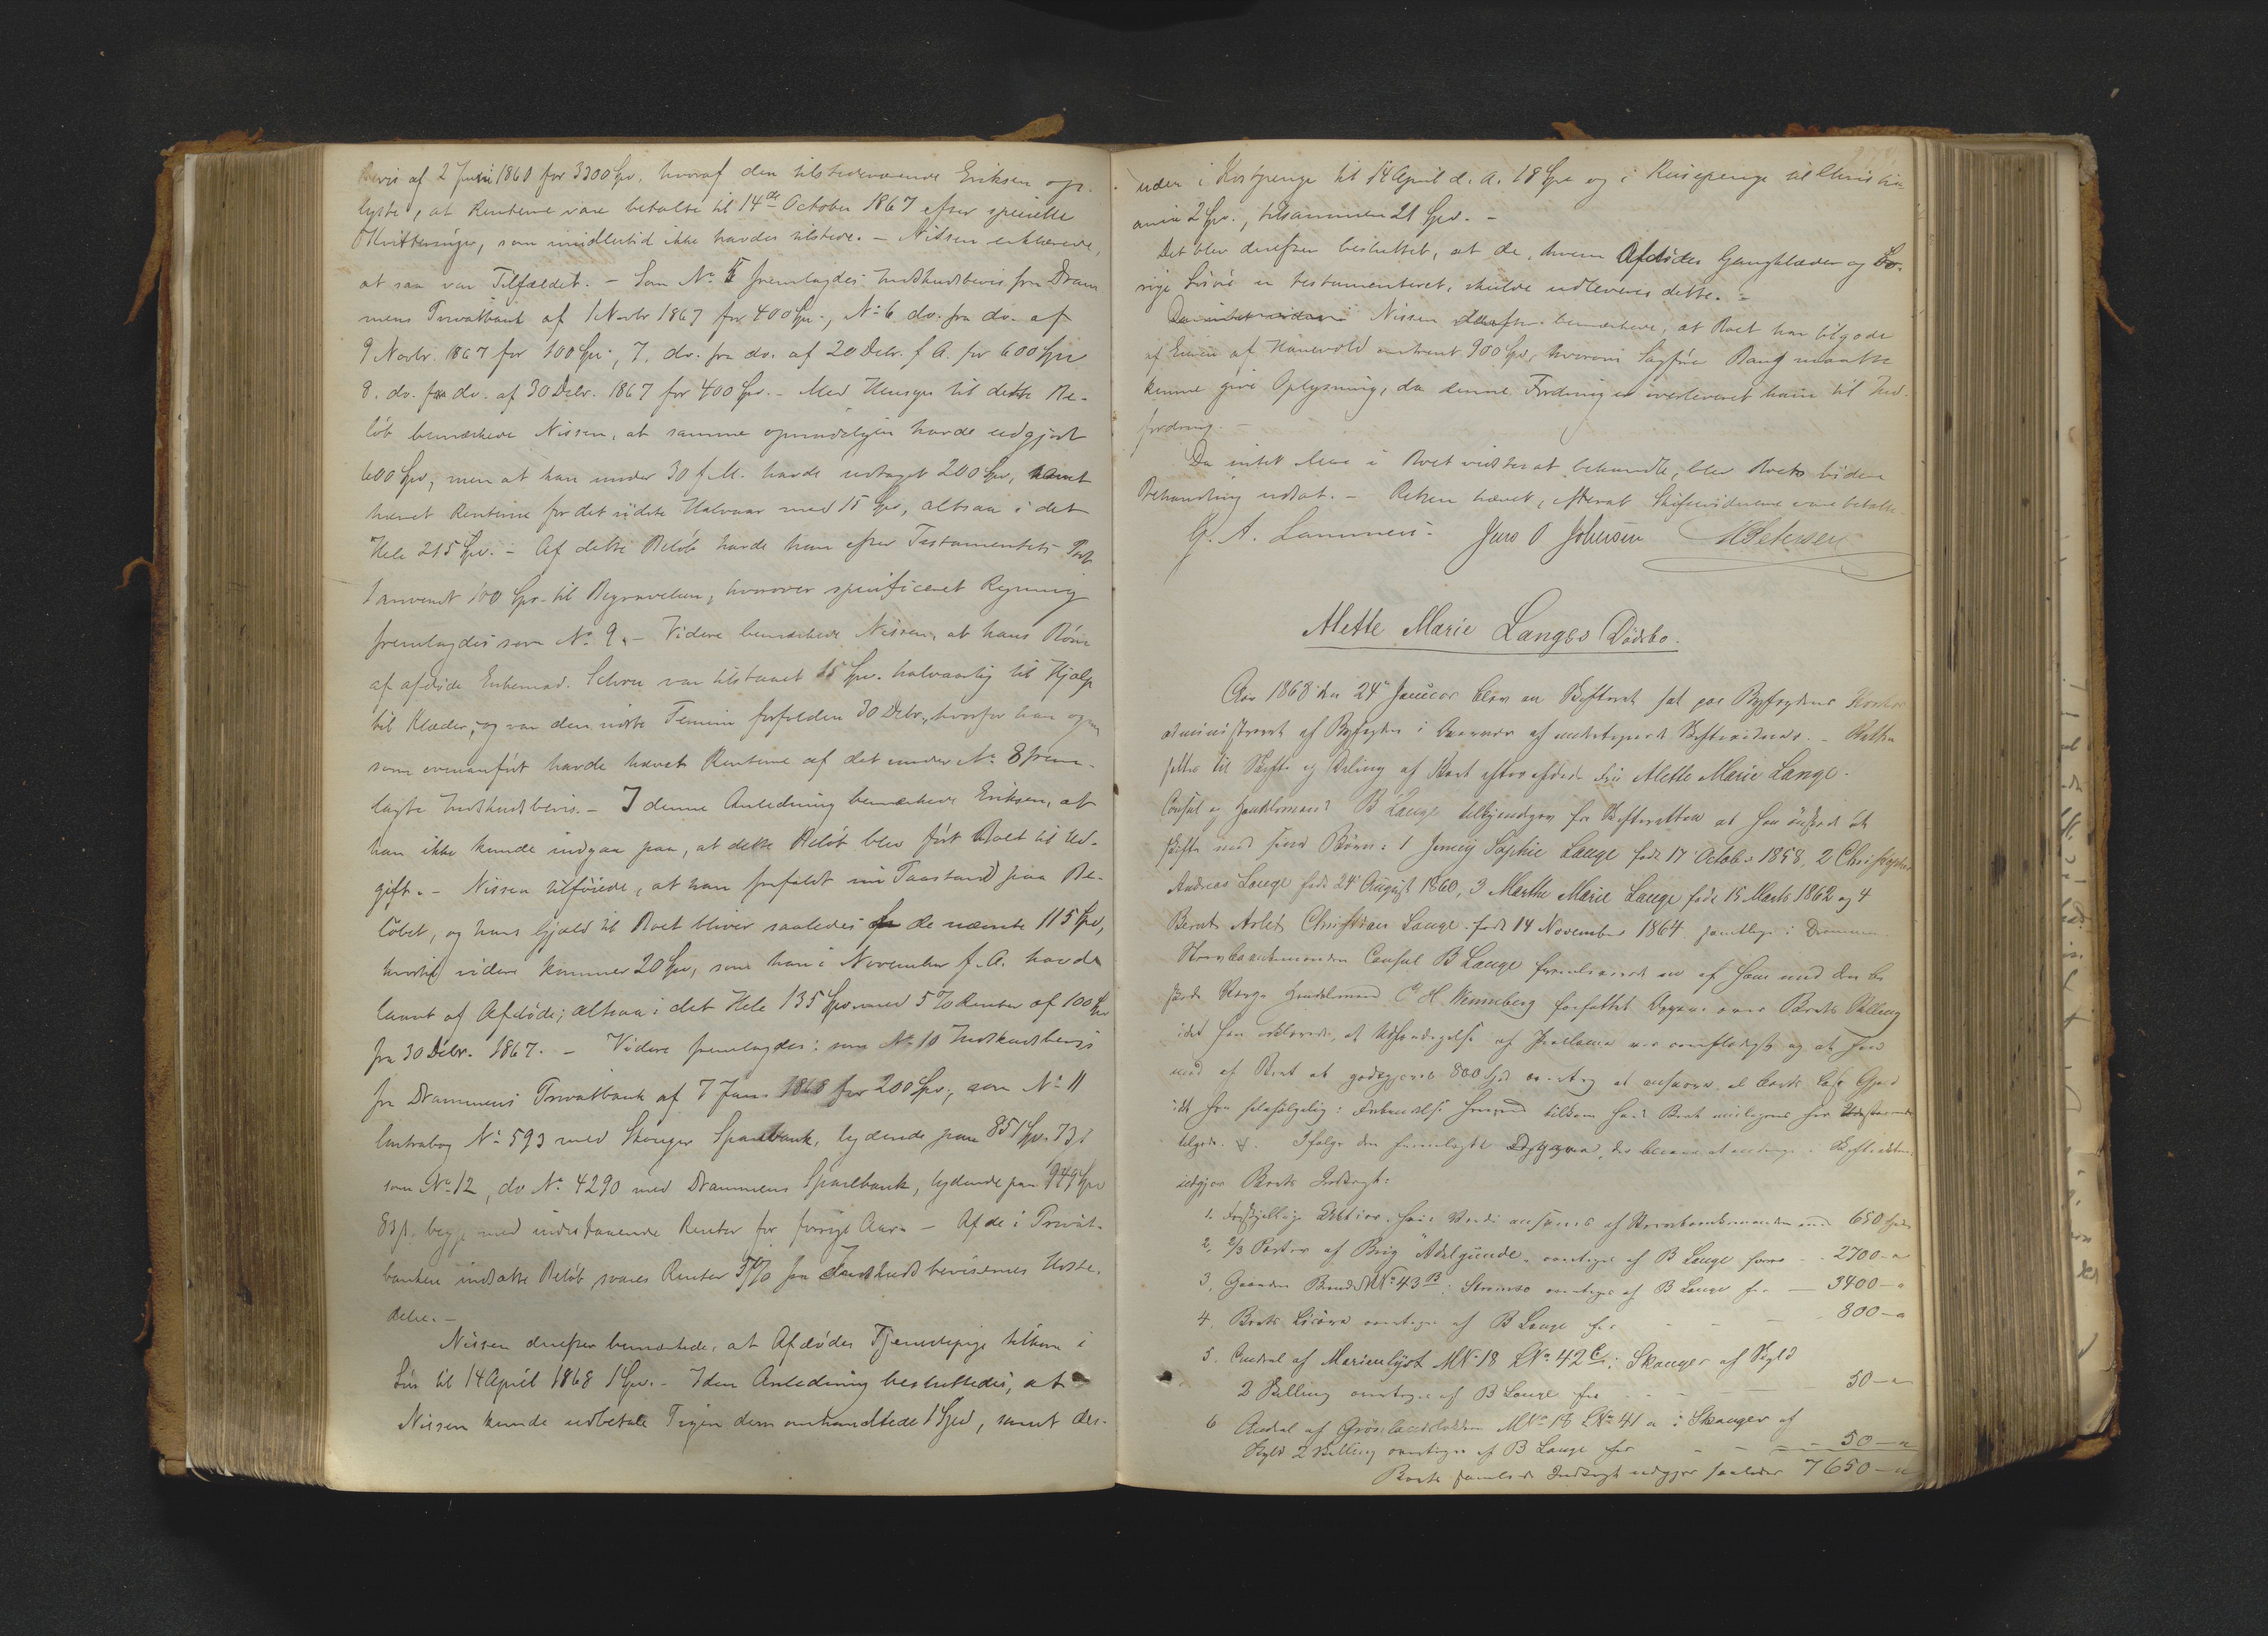 bevis af 2 Juni 1860 for 3300 Spd. hvoraf den tilstedeværende Eriksen op-
lyste, at Renterne vare betalte til 14de October 1867 efter specielle
Kvitteringer, som imidlertid ikke havdes tilstede. – Nissen erklærede,
at saa var Tilfældet. – Som No 5 fremlagdes Indskudsbevis fra Dram
mens Privatbank af 1 Novbr 1867 for 400 Spd., No 6 do. fra do. af
9 Novbr. 1867 for 100 Spd., 7. do. fra do. af 20 Debr. f. A. for 600 Spd
8. do. fra do. af 30 Debr. 1867 for 400 Spd. – Med Hensyn til dette Be-
løb bemærkede Nissen, at samme oprindeligen havde udgjort
600 Spd, men at han under 30 f. M. havde udtaget 200 Spd, samt
hævet Renterne for det sidste Halvaar med 15 Spd, altsaa i det
Hele 215 Spd. – Af dette Beløb havde han efter Testamentets Post
1 anvendt 100 Spd. til Begravelsen, hvorover specificeret Regning
fremlagdes som No 9. – Videre bemærkede Nissen, at hans Børn
af afdøde Enkemad. Schou var tilstaaet 15 Spd. halvaarlig til Hjælp
til Klæder, og var den sidste Termin forfalden 30 Debr., hvorfor han ogsaa
som ovenanført havde hævet Renterne af det under No 8 frem-
lagte Indskudsbevis. – I denne Anledning bemærkede Eriksen, at
han ikke kunde indgaa paa, at dette Beløb blev ført Boet til Ud-
gift. – Nissen tilføiede, at han frafaldt sin Paastand paa Be-
løbet, og hans Gjæld til Boet bliver saaledes de nævnte 115 Spd,
hvortil videre kommer 20 Spd, som han i November f. A. havde
laant af Afdøde; altsaa i det Hele 135 Spd med 5 % Renter af 100 Spd
fra 30 Debr. 1867. – Videre fremlagdes: som No 10 Indskudsbevis
fra Drammens Privatbank af 7 Jan. 1868 for 200 Spd., som No 11
Contrabog No 593 med Skouger Sparebank, lydende paa 851 Spd. 73 s
som No 12, do No 4290 med Drammens Sparebank, lydende paa 949 Spd
83 s. begge med indestaaende Renter for forrige Aar. – Af de i Privat-
banken indsatte Beløb svares Renter 5 % fra Indskudsbevisernes Udste-
delse. –
Nissen derefter bemærkede, at Afdødes Tjenestepige tilkom i
Løn til 14 April 1868 1 Spd. – I den Anledning besluttedes, at
Nissen kunde udbetale Pigen den omhandlede 1 Spd, samt des-
uden i Kostpenge til 14 April d. A. 18 Spd og i Reisepenge til Christi-
ania 2 Spd., tilsammen 21 Spd. –
Det blev derefter besluttet, at de, hvem Afdødes Gangklæder og
Løsøre er testamenteret, skulde udleveres dette. –
Nissen derefter bemærkede, at Boet har tilgode
af Eieren af Hanevold omtrent 900 Spd, hvorom Sagfører Bang maatte
kunne give Oplysning, da denne Fordring er overleveret ham til Ind-
fordring. –
Da intet Mere i Boet vidstes at behandle, blev Boets videre
Behandling udsat. – Retten hævet, efterat Skiftevidnerne vare betalte.
G. A. Lammers. Jens O Johnsen Petersen
Alette Marie Langes Dødsbo.
Aar 1868 den 24de Januar blev en Skifteret sat paa Byfogdens Kontor
administreret af Byfogden i Overvær af undertegnede Skiftevidner. – Retten
sattes til Skifte og Deling af Boet efter afdøde Fru Alette Marie Lange.
Consul og Handelsmand B Lange tilkjendegav for Skifteretten at han ønskede at
skifte med sine Børn: 1 Jenny Sophie Lange født 17 October 1858, 2 Christopher
Andreas Lange født 24 August 1860, 3 Marthe Marie Lange født 15 Marts 1862 og 4
Bernt Christian Lange født 14 November 1864 samtlige i Drammen
Consul B Lange fremleverede en af ham med den be
Handelsmand C. H. Wenneberg forfattet Opgave over Boets Stilling
idet han erklærede, at Udstædelse af Proclama var overflødigt og at han
mod af Boet at godtgjøres 800 Spd
Ifølge den fremlagte Opgave,
udgjør Boets Indtægt:
1. Forskjellige Aktier, hvis Værdi ansaaes af Stervbomanden med 650 Spd
2. 2/3 Parter af Brig "Adelgunde" overtages af B Lange for 2700 –
3. Gaarden Brand No 43 B i Strømsø overtages af B Lange for – 3400 –
4. Boets Løsøre overtages af B Lange for 800 –
5. Andel af Marienlyst MNo 18 LNo 42 c i Skauger af Skyld
2 Skilling overtages af B Lange for 50 –
6 Andel af Grønlandsløkken MNo 18 LNo 41 a i Skauger af
Skyld 2 Skilling overtages af B Lange for 50 –
Boets samlede Indtægt udgjør saaledes 7650 –